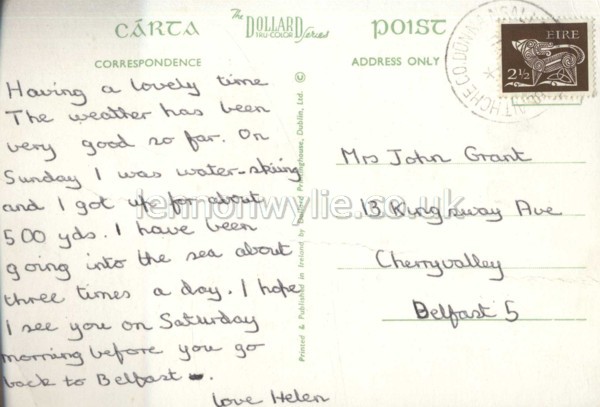 CÁRTA
The DOLLARD TRU-COLOR Series
POIST
CORRESPONDENCE
ADDRESS ONLY
EIRE
2½
CO. DONA
Having a lovely time
The weather has been
very good so far. On
Sunday I was water-skiing
and I got up for about
500 yds. I have been
going into the sea about
three times a day. I hope
I see you on Saturday
morning before you go
back to Belfast.
Love Helen
Printed & Published in Ireland by Dollard Printinghouse, Dublin, Ltd. ©
Mrs John Grant
13 Kingsway Ave
Cherryvalley
Belfast 5
lennonwylie.co.uk